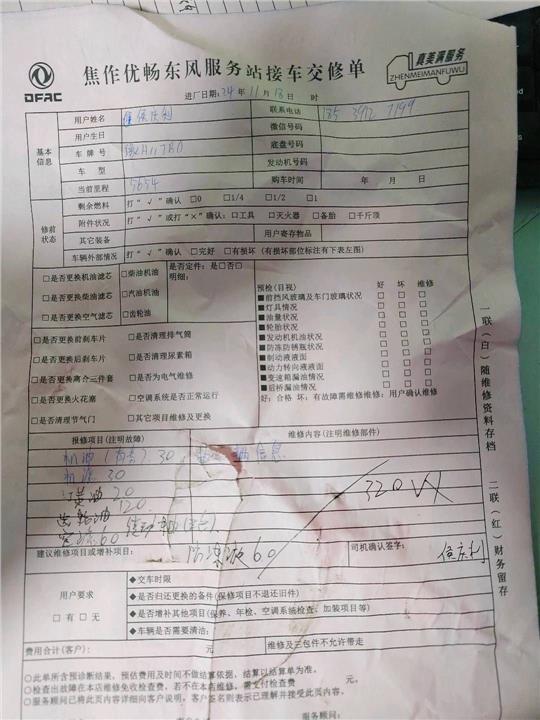 DFAC
焦作优畅东风服务站接车交修单
真美满服务
ZHENMEIMANFUWU
进厂日期: 24 年 11 月 18 日 时
基本信息
用户姓名
联系电话
用户生日
微信号码
车 牌 号
底盘号码
车 型
发动机号码
当前里程 5654
购车时间 年 月 日
修前状态
剩余燃料 打“√”确认 □0 □1/4 □1/2 □1
附件状况 打“√”或打“×”确认: □工具 □灭火器 □备胎 □千斤顶
其它装备 用户寄存物品
车辆外部情况 打“√”确认 □完好 □有损坏 (有损坏部位标注有下表左图)
□是否更换机油滤芯 □柴油机油
□是否更换柴油滤芯 □汽油机油
□是否更换空气滤芯 □齿轮油
是否定件: 是□否□
明细:
□是否更换前刹车片 □是否清理排气筒
□是否更换后刹车片 □是否清理尿素箱
□是否更换离合三件套 □是否为电气维修
□是否更换火花塞 □空调系统是否正常运行
□是否清理节气门 □其它项目维修及更换
预检(目视) 好 坏 维修
■前挡风玻璃及车门玻璃状况 □ □ □
■灯具情况 □ □ □
■油量状况 □ □ □
■轮胎状况 □ □ □
■发动机机油状况 □ □ □
■防冻防锈瓶状况 □ □ □
■制动液液面 □ □ □
■动力转向液液面 □ □ □
■变速箱漏油情况 □ □ □
■后桥漏油情况 □ □ □
好: 合格 坏: 有故障需维修维修: 用户确认维修
报修项目(注明故障)
维修内容(注明维修部件)
机滤 30
120
320
建议维修项目或增补项目:
防冻液 60
司机确认签字:
侯庆利
用户要求
□有□无
◆交车时限
◆是否归还更换的备件(保修项目不退还旧件)
◆是否增补其他项目(保养、年检、空调系统检查、加装项目等)
◆车辆是否需要清油:
费用合计(客户): 元
维修及三包件不允许带走
○此单所含预诊断结果、预估费用及时间不做结算依据, 结算以结算单为准。
○检查出故障在本店维修免收检查费, 若不在本店维修, 需支付检查费 元。
○服务顾问已将此页内容详细向客户说明, 客户签名则表示已理解并接受此页内容。
服务顾问:
一联(白)随维修资料存档
二联(红)财务留存